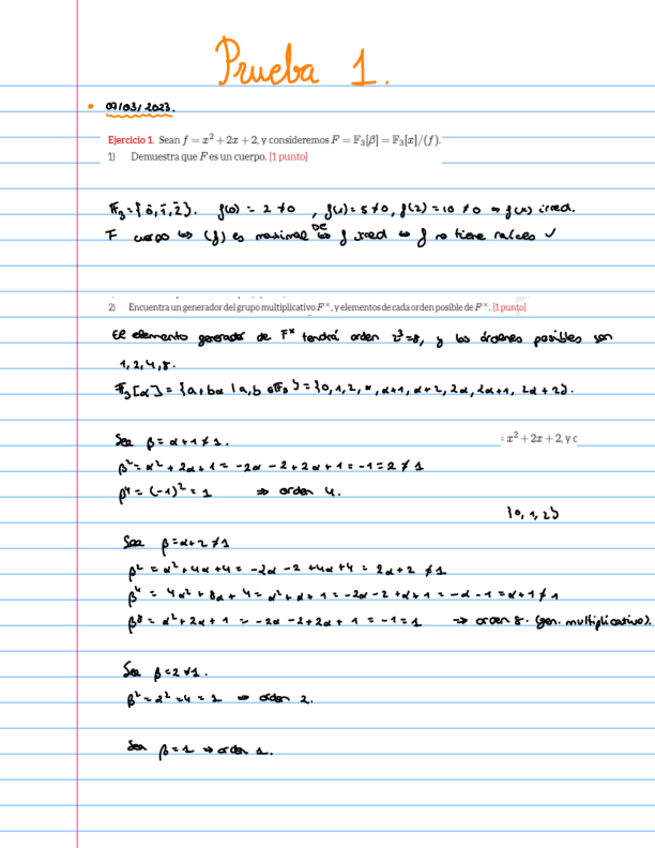 Prueba 1.
• 07/03/2023.
Ejercicio 1. Sean f = x² + 2x + 2, y consideremos F = 𝔽₃[β] = 𝔽₃[x]/(f).
1) Demuestra que F es un cuerpo. [1 punto]
𝔽₃ = {0̄, 1̄, 2̄}. f(0) = 2 ≠ 0, f(1) = 5 ≠ 0, f(2) = 10 ≠ 0 ⇒ f(x) irred.
F cuerpo ⇔ (f) es maximal ⇔ DE f irred ⇔ f no tiene raíces ✓
2) Encuentra un generador del grupo multiplicativo F×, y elementos de cada orden posible de F×. [1 punto]
El elemento generador de F× tendrá orden 2³=8, y los órdenes posibles son
1, 2, 4, 8.
𝔽₃[α] = {a+bα | a,b ∈ 𝔽₃} = {0, 1, 2, α, α+1, α+2, 2α, 2α+1, 2α+2}.
Sea β = α+1 ≠ 1.
= x² + 2x + 2, y c
β² = α² + 2α + 1 = -2α - 2 + 2α + 1 = -1 = 2 ≠ 1
β⁴ = (-1)² = 1 ⇒ orden 4.
{0, 1, 2}
Sea β = α+2 ≠ 1
β² = α² + 4α + 4 = -2α - 2 + 4α + 4 = 2α + 2 ≠ 1
β⁴ = 4α² + 8α + 4 = α² + α + 1 = -2α - 2 + α + 1 = -α - 1 = α + 1 ≠ 1
β⁸ = α² + 2α + 1 = -2α - 2 + 2α + 1 = -1 = 1 ⇒ orden 8. (gen. multiplicativo).
Sea β = 2 ≠ 1.
β² = 2² = 4 = 1 ⇒ orden 2.
Sea β = 1 ⇒ orden 1.